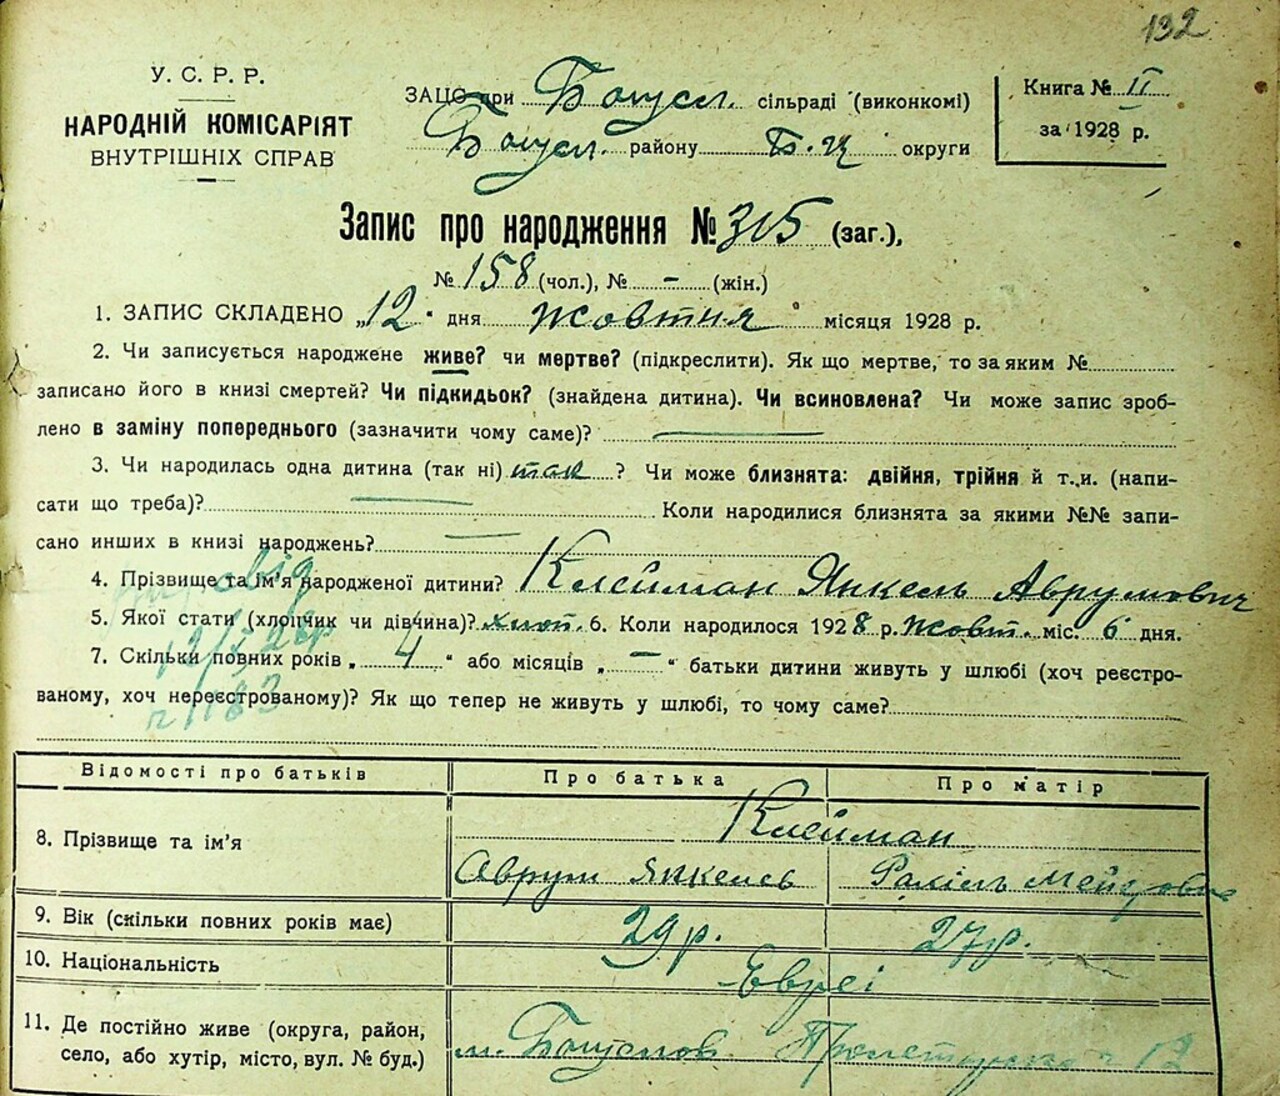 132
У. С. Р. Р.
НАРОДНІЙ КОМІСАРІЯТ
ВНУТРІШНІХ СПРАВ
ЗАЦС при Богусл. сільраді (виконкомі)
Богусл. району Б. Ц округи
Книга № II
за 1928 р.
Запис про народження № 315 (заг.),
№ 158 (чол.), № - (жін.)
1. ЗАПИС СКЛАДЕНО „12" дня жовтня місяця 1928 р.
2. Чи записується народжене живе? чи мертве? (підкреслити). Як що мертве, то за яким №
записано його в книзі смертей? Чи підкидьок? (знайдена дитина). Чи всиновлена? Чи може запис зроб-
лено в заміну попереднього (зазначити чому саме)? —
3. Чи народилась одна дитина (так ні) так ? Чи може близнята: двійня, трійня й т. и. (напи-
сати що треба)? — Коли народилися близнята за якими №№ запи-
сано инших в книзі народжень? —
4. Прізвище та ім'я народженої дитини? Клейман Янкель Аврумович
5. Якої стати (хлопчик чи дівчина)? хлоп. 6. Коли народилося 1928 р. жовт. міс. 6 дня.
7. Скільки повних років „ 4 " або місяців „ — " батьки дитини живуть у шлюбі (хоч реєстро-
ваному, хоч нереєстрованому)? Як що тепер не живуть у шлюбі, то чому саме?
Відомості про батьків Про батька Про матір
8. Прізвище та ім'я Клейман
Аврум Янкель Рахіль
9. Вік (скільки повних років має) 29 р. 27 р.
10. Національність Евреі
11. Де постійно живе (округа, район,
село, або хутір, місто, вул. № буд.) м. Богуслав 12